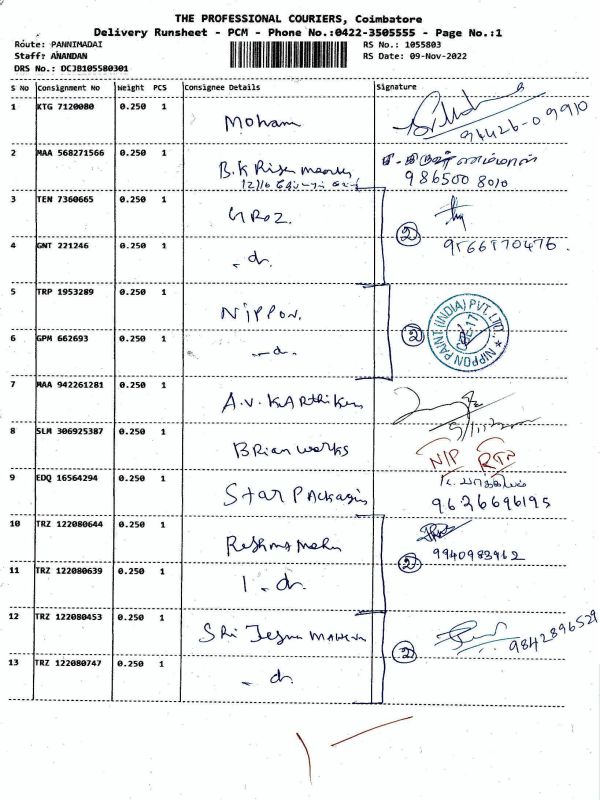 THE PROFESSIONAL COURIERS, Coimbatore
Delivery Runsheet - PCM - Phone No.:0422-3505555 - Page No.:1
Route: PANNIMADAI RS No.: 1055803
Staff: ANANDAN RS Date: 09-Nov-2022
DRS No.: DCJB105580301
S No Consignment No Weight PCS Consignee Details Signature
1 KTG 7120080 0.250 1 Moham
94426-09910
2 MAA 568271566 0.250 1 B.K
986500 8010
3 TEN 7360665 0.250 1 GROZ
② 9566570476.
4 GNT 221246 0.250 1 - do.
5 TRP 1953289 0.250 1 NiPPON.
② NIPPON PAINT (INDIA) PVT. LTD.
6 GPM 662693 0.250 1 - do.
7 MAA 942261281 0.250 1 A.V. KARthiken
8 SLM 306925387 0.250 1 BRian works
N/P RTN
9 EDQ 16564294 0.250 1 Star Packagin
9626696195
10 TRZ 122080644 0.250 1 Reshma
② 9940983962
11 TRZ 122080639 0.250 1 1 - do.
12 TRZ 122080453 0.250 1 SRi
② 9842896529
13 TRZ 122080747 0.250 1 - do.